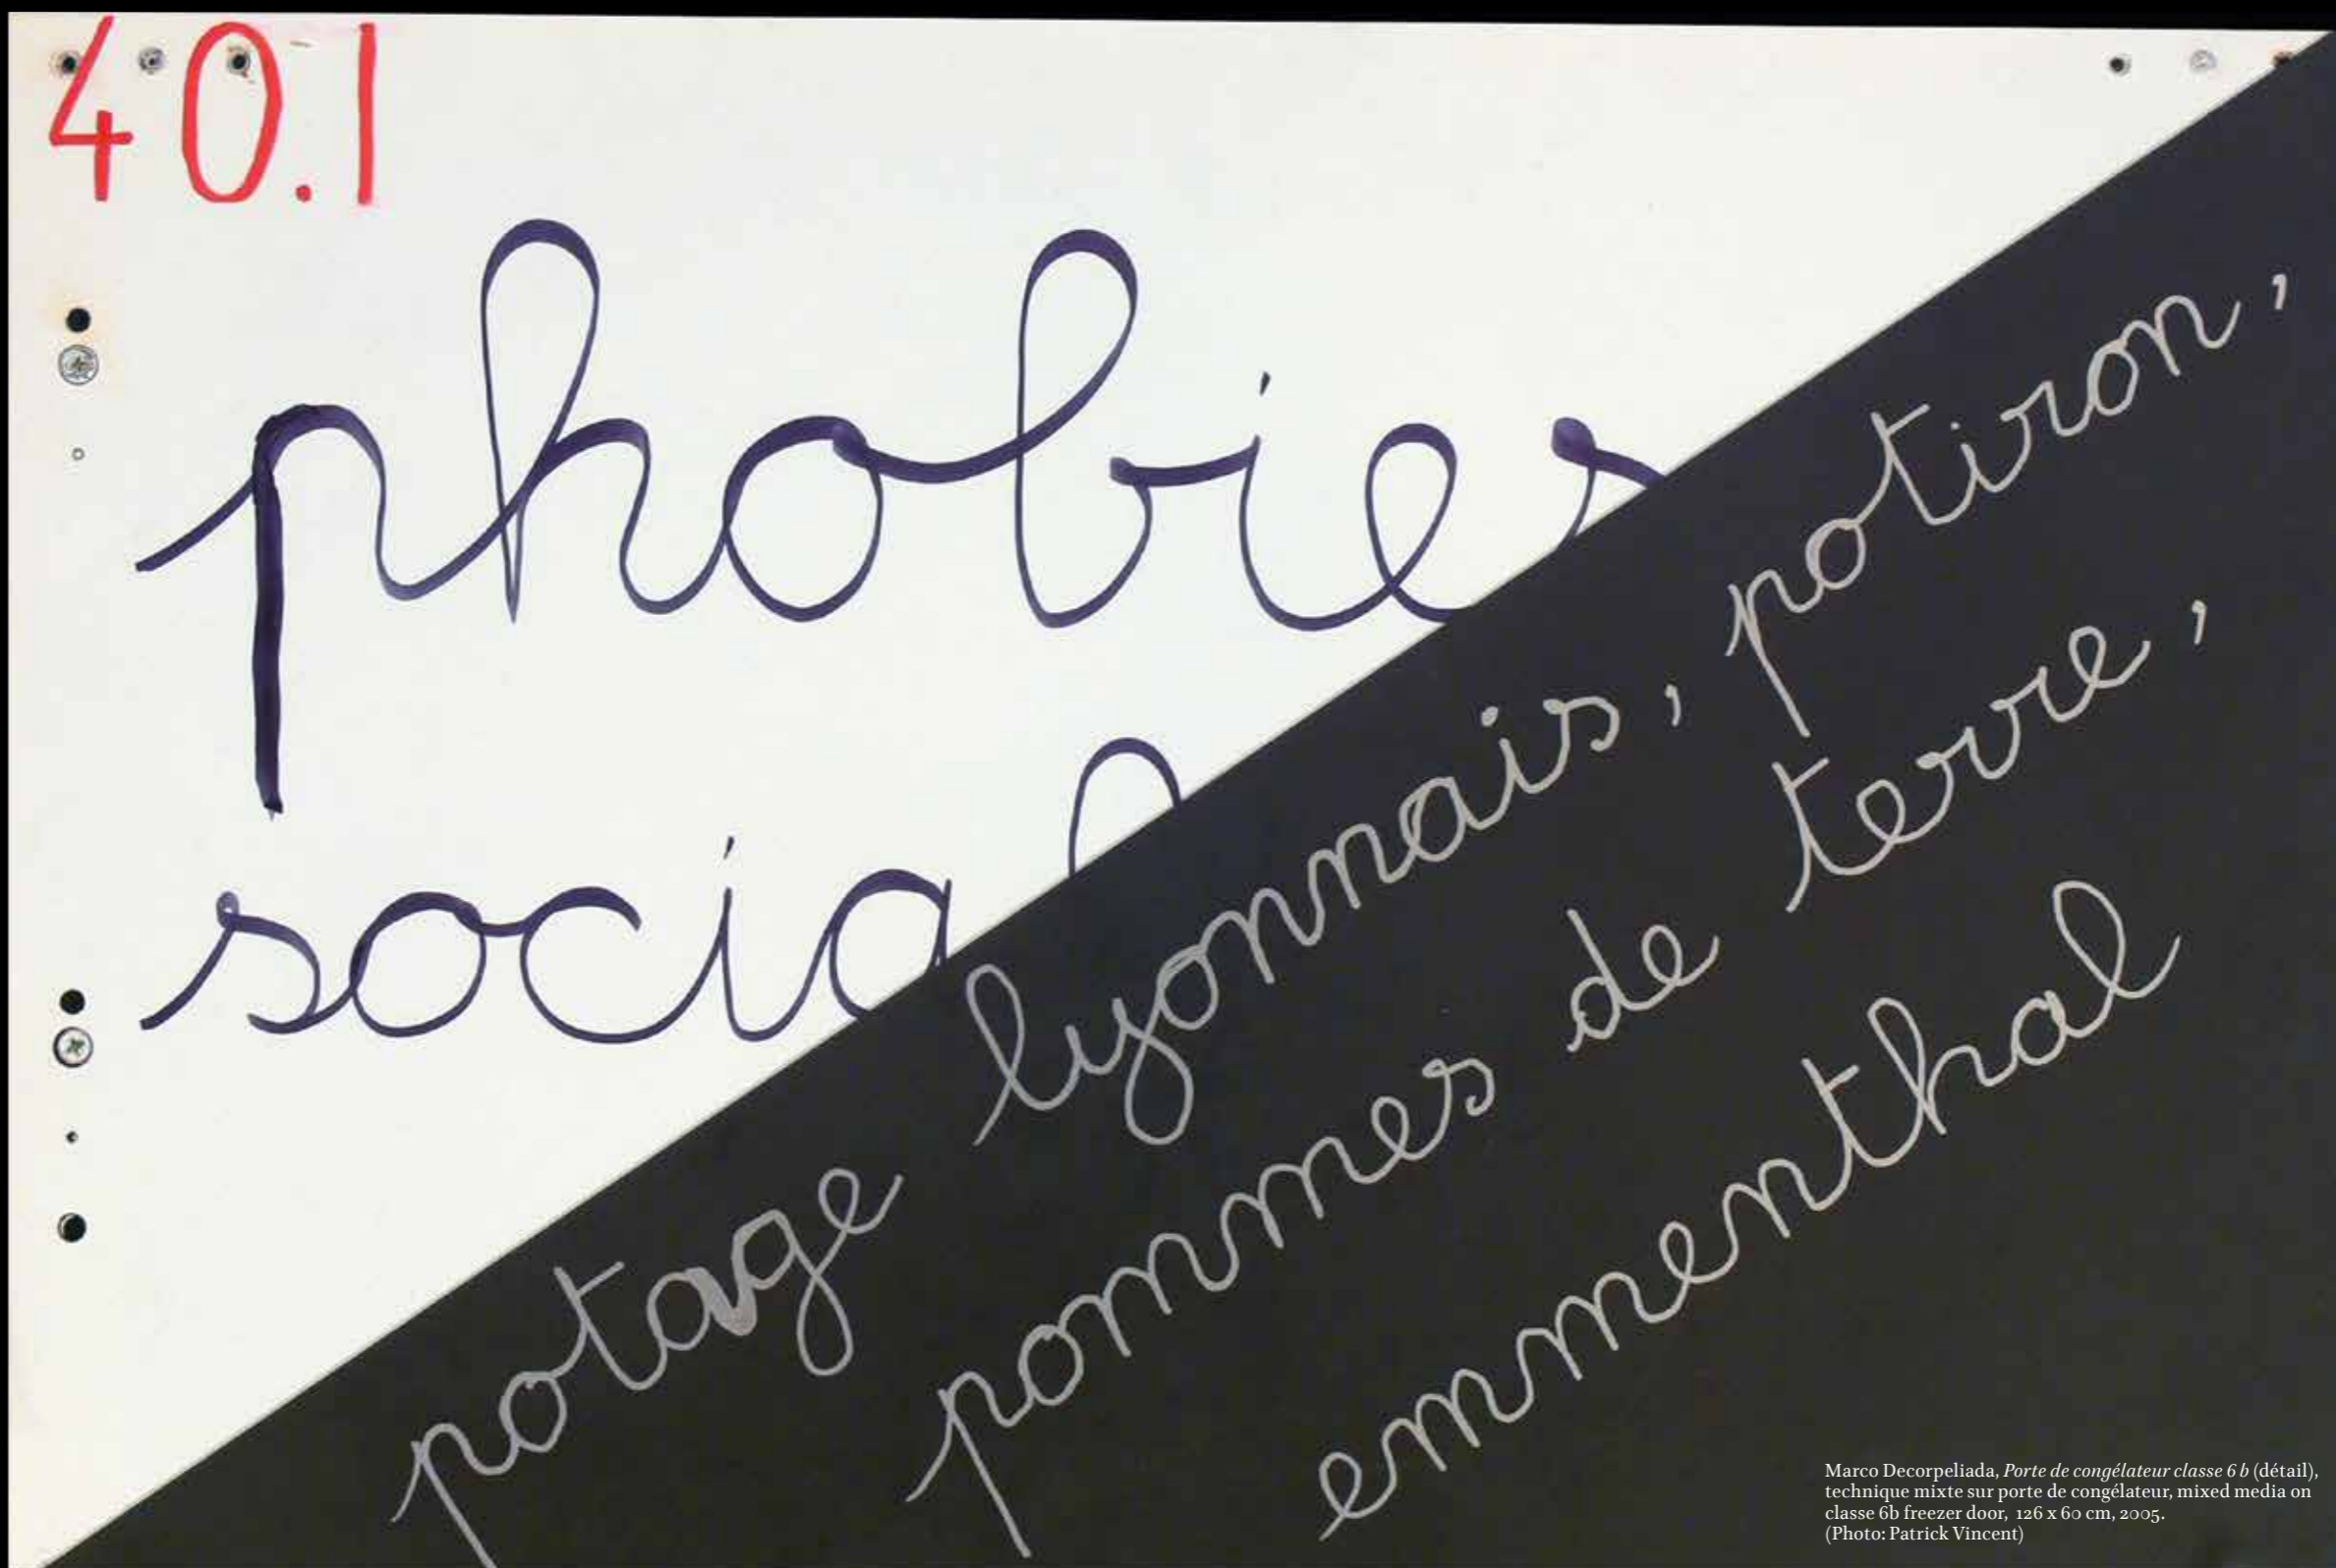 40.1
phobies
social
potage lyonnais, potiron,
pommes de terre,
emmenthal
Marco Decorpeliada, Porte de congélateur classe 6 b (détail),
technique mixte sur porte de congélateur, mixed media on
classe 6b freezer door, 126 x 60 cm, 2005.
(Photo: Patrick Vincent)